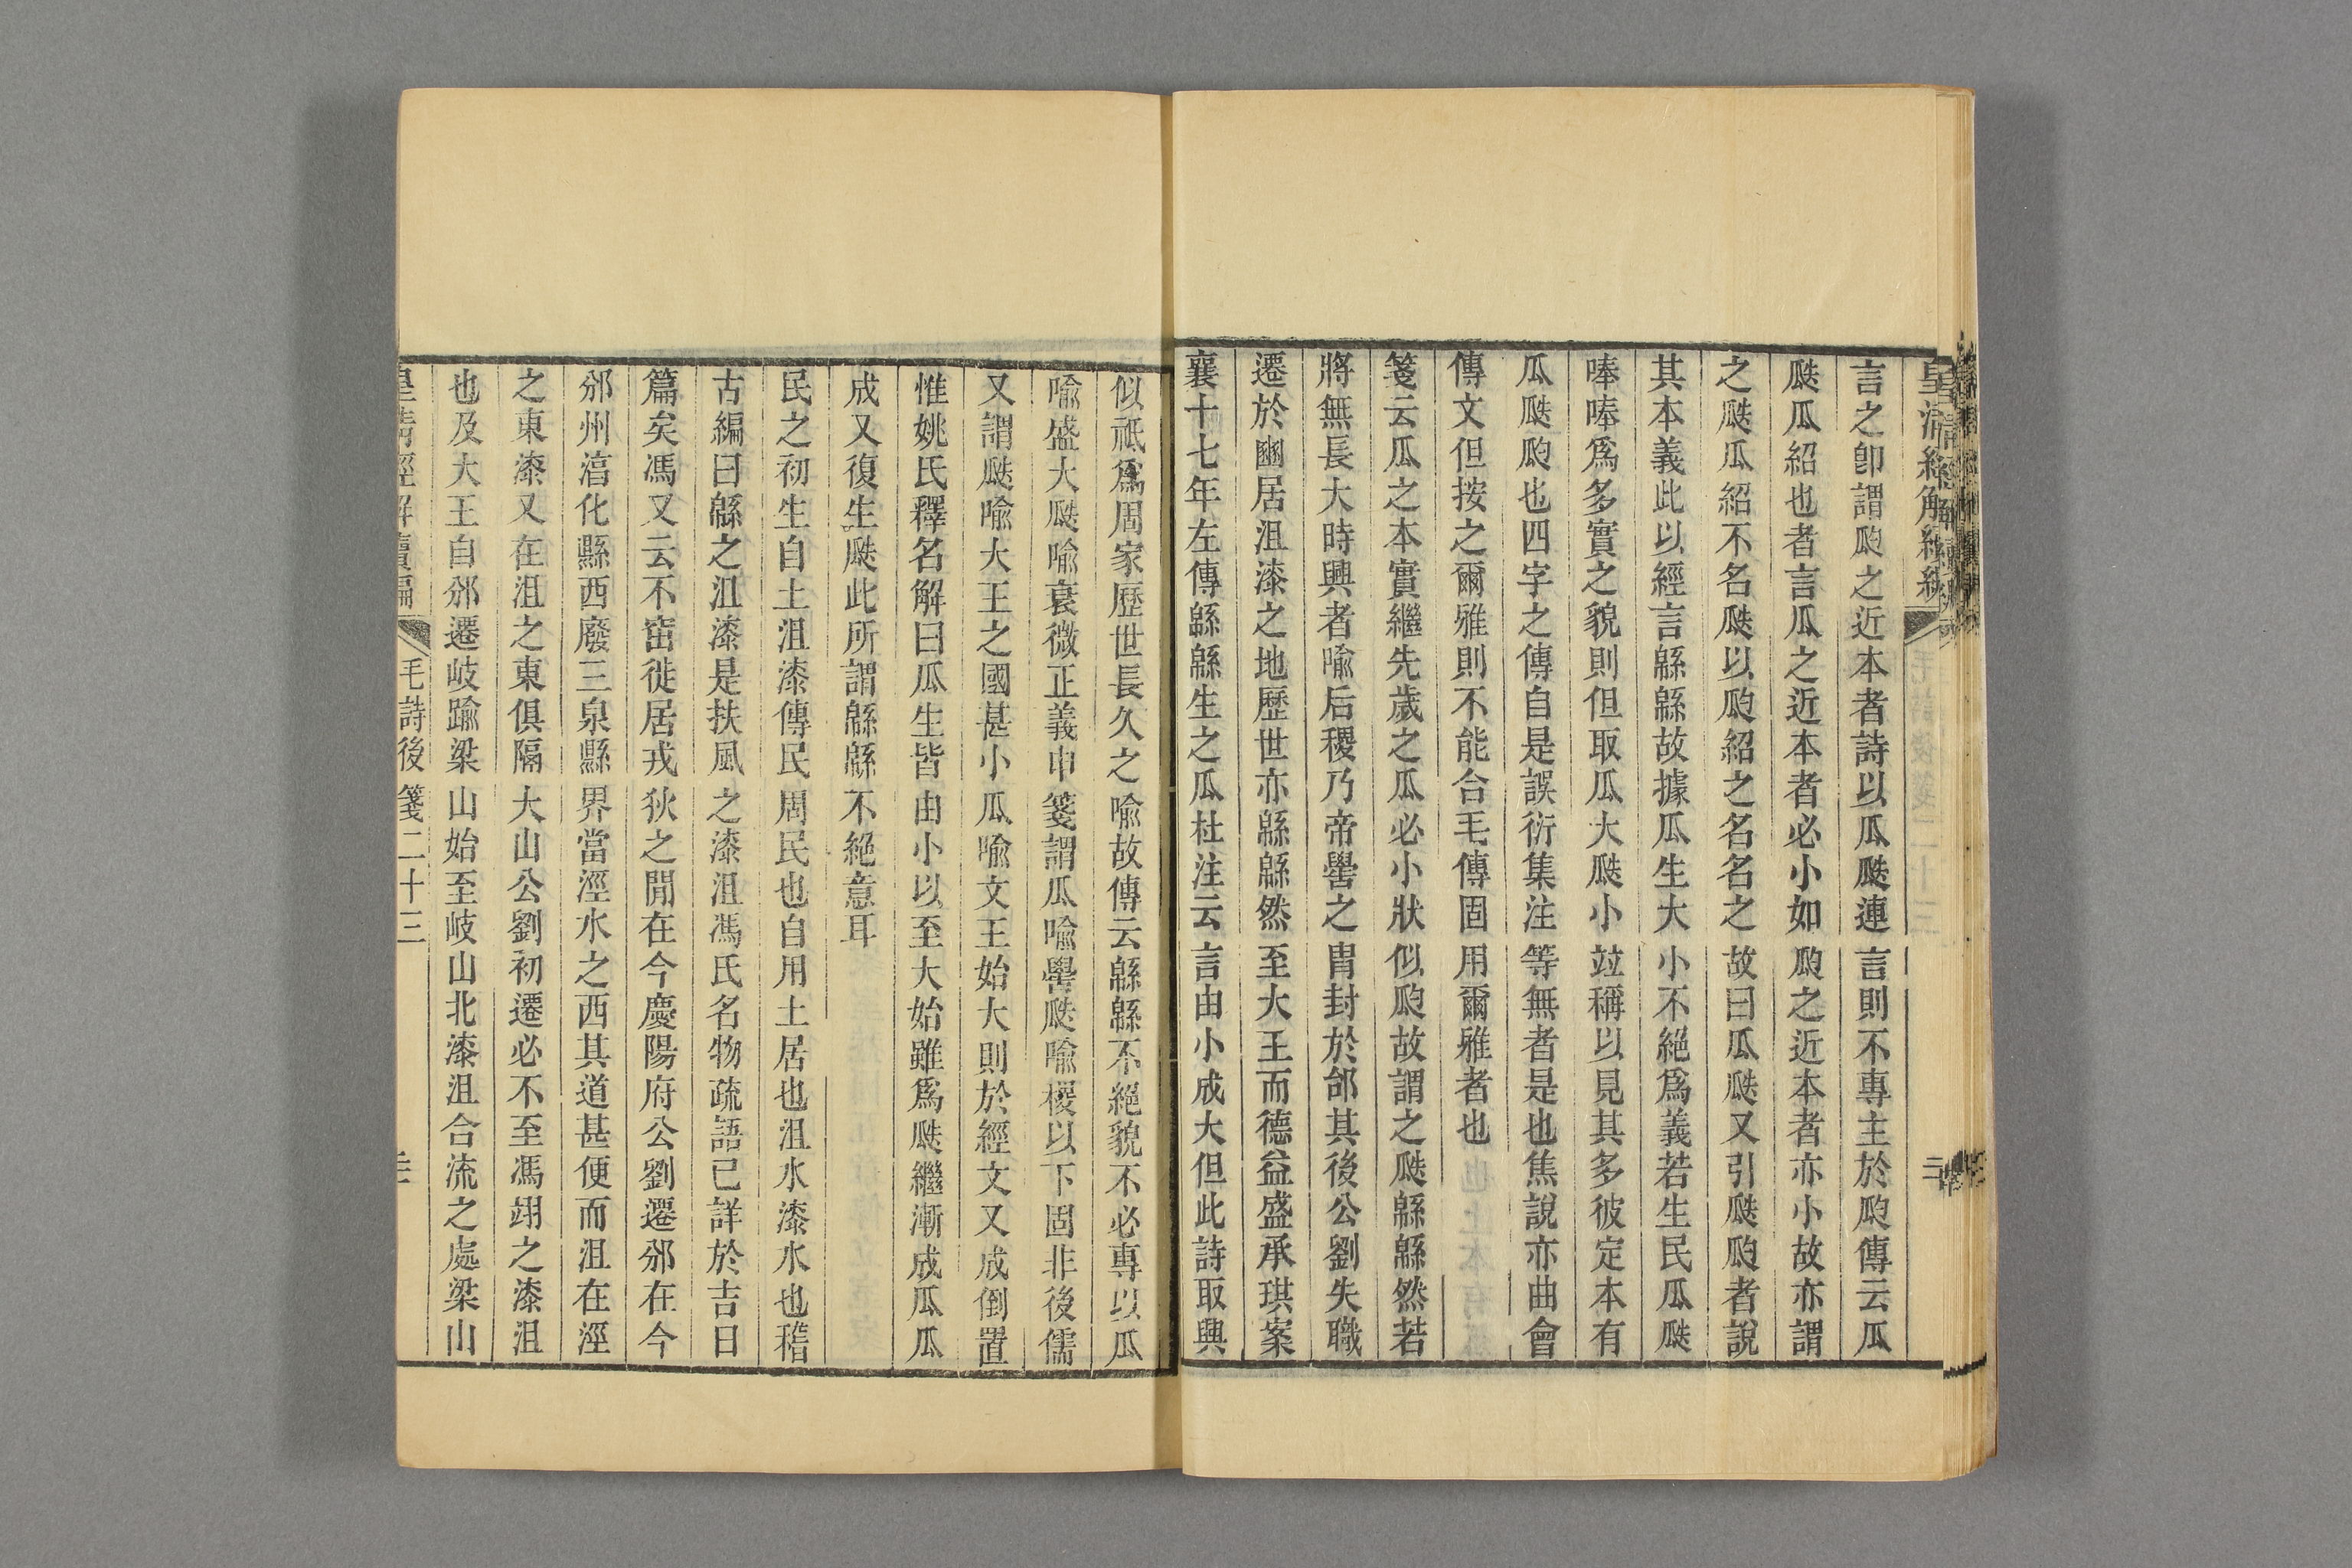 言之卽謂瓝之近本者詩以瓜瓞連言則不專主於瓝傳云瓜
瓞瓜紹也者言瓜之近本者必小如瓝之近本者亦小故亦謂
之瓞瓜紹不名瓞以瓝紹之名名之故曰瓜瓞又引瓞瓝者說
其本義此以經言緜緜故據瓜生大小不絕爲義若生民瓜瓞
唪唪爲多實之貌則但取瓜大瓞小竝稱以見其多彼定本有
瓜瓞瓝也四字之傳自是誤衍集注等無者是也焦說亦曲會
傳文但按之爾雅則不能合毛傳固用爾雅者也
箋云瓜之本實繼先歲之瓜必小狀似瓝故謂之瓞緜緜然若
將無長大時興者喩后稷乃帝嚳之胄封於邰其後公劉失職
遷於豳居沮漆之地歷世亦緜緜然至大王而德益盛承珙案
襄十七年左傳緜緜生之瓜杜注云言由小成大但此詩取興
似祇爲周家歷世長久之喩故傳云緜緜不絕貌不必專以瓜
喩盛大瓞喩衰微正義申箋謂瓜喩嚳瓞喩稷以下固非後儒
又謂瓞喩大王之國甚小瓜喩文王始大則於經文又成倒置
惟姚氏釋名解曰瓜生皆由小以至大始雖爲瓞繼漸成瓜瓜
成又復生瓞此所謂緜緜不絕意耳
民之初生自土沮漆傳民周民也自用土居也沮水漆水也稽
古編曰緜之沮漆是扶風之漆沮馮氏名物疏語已詳於吉日
篇矣馮又云不窋徙居戎狄之閒在今慶陽府公劉遷邠在今
邠州淳化縣西廢三泉縣界當涇水之西其道甚便而沮在涇
之東漆又在沮之東俱隔大山公劉初遷必不至馮翊之漆沮
也及大王自邠遷岐踰梁山始至岐山北漆沮合流之處梁山
皇清經解續編
毛詩後箋二十三